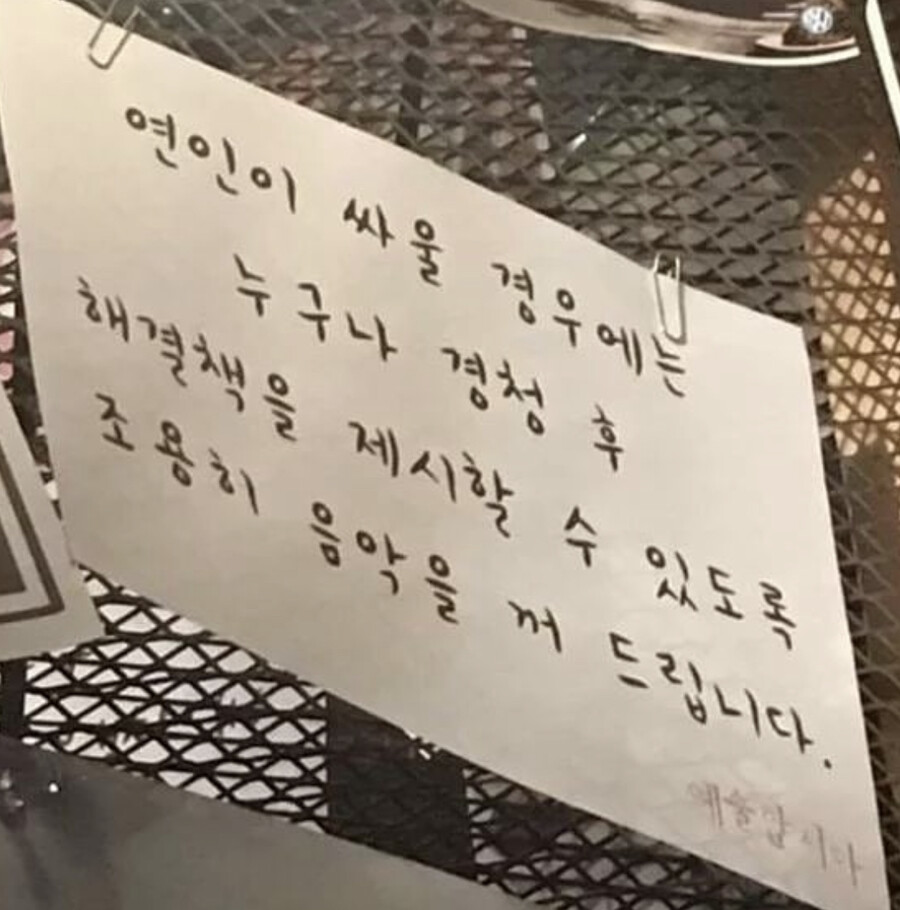 연인이 싸울 경우에는
누구나 경청 후
해결책을 제시할 수 있도록
조용히 음악을 꺼 드립니다.